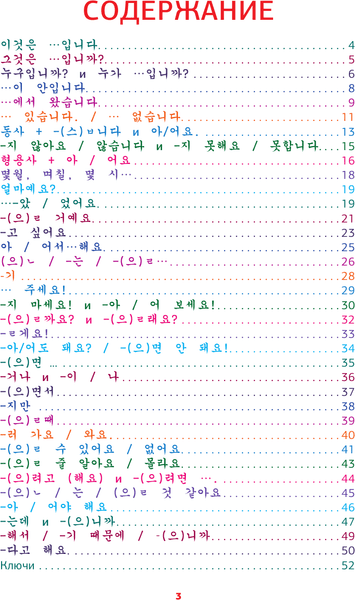 СОДЕРЖАНИЕ
이것은 …입니다 4
그것은 …입니까? 5
누구입니까? и 누가 …입니까? 6
…이 안입니다 8
…에서 왔습니다 9
… 있습니다. / … 없습니다 11
동사 + -(스)ㅂ니다 и 아/어요. 13
-지 않아요 / 않습니다 и -지 못해요 / 못합니다 15
형용사 + 아 / 어요 16
몇월, 며칠, 몇 시… 18
얼마예요? 19
…-았 / 었어요 19
-(으)ㄹ 거예요 21
-고 싶어요 23
아 / 어서…해요 25
(으)ㄴ / -는 / -(으)ㄹ… 26
-기 28
… 주세요! 29
-지 마세요! и -아 / 어 보세요! 30
-(으)ㄹ까요? и -(으)ㄹ래요? 32
-ㄹ게요! 33
-아/어도 돼요? / -(으)면 안 돼요! 34
-(으)면 … 35
-거나 и -이 / 나 36
-(으)면서 37
-지만 38
-(으)ㄹ때 39
-러 가요 / 와요 40
-(으)ㄹ 수 있어요 / 없어요 41
-(으)ㄹ 줄 알아요 / 몰라요 43
-(으)려고 (해요) и -(으)려면 … 44
-(으)ㄴ / 는 / (으)ㄹ 것 같아요 45
-아 / 어야 해요 46
-는데 и -(으)니까 47
-해서 / -기 때문에 / -(으)니까 49
-다고 해요 50
Ключи 52
3